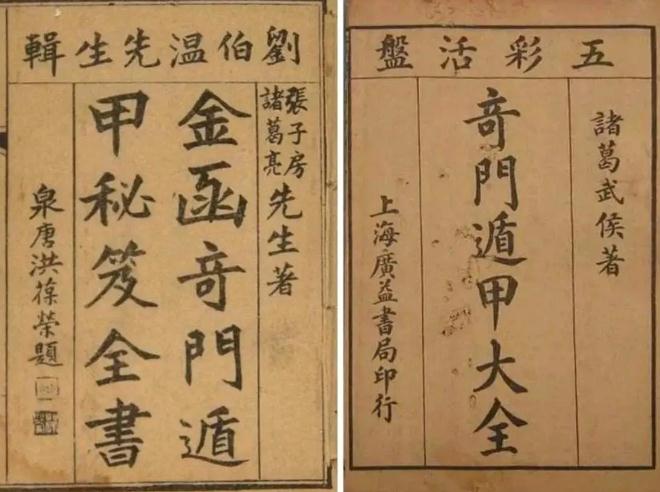 劉伯温先生輯
張子房
諸葛亮
先生著
金函奇門遁
甲秘笈全書
泉唐洪葆榮題
五彩活盤
諸葛武侯著
奇門遁甲大全
上海廣益書局印行